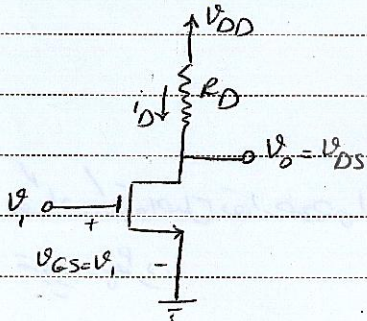 V_DD
i_D R_D
v_o = v_DS
v_I +
v_GS = v_I -